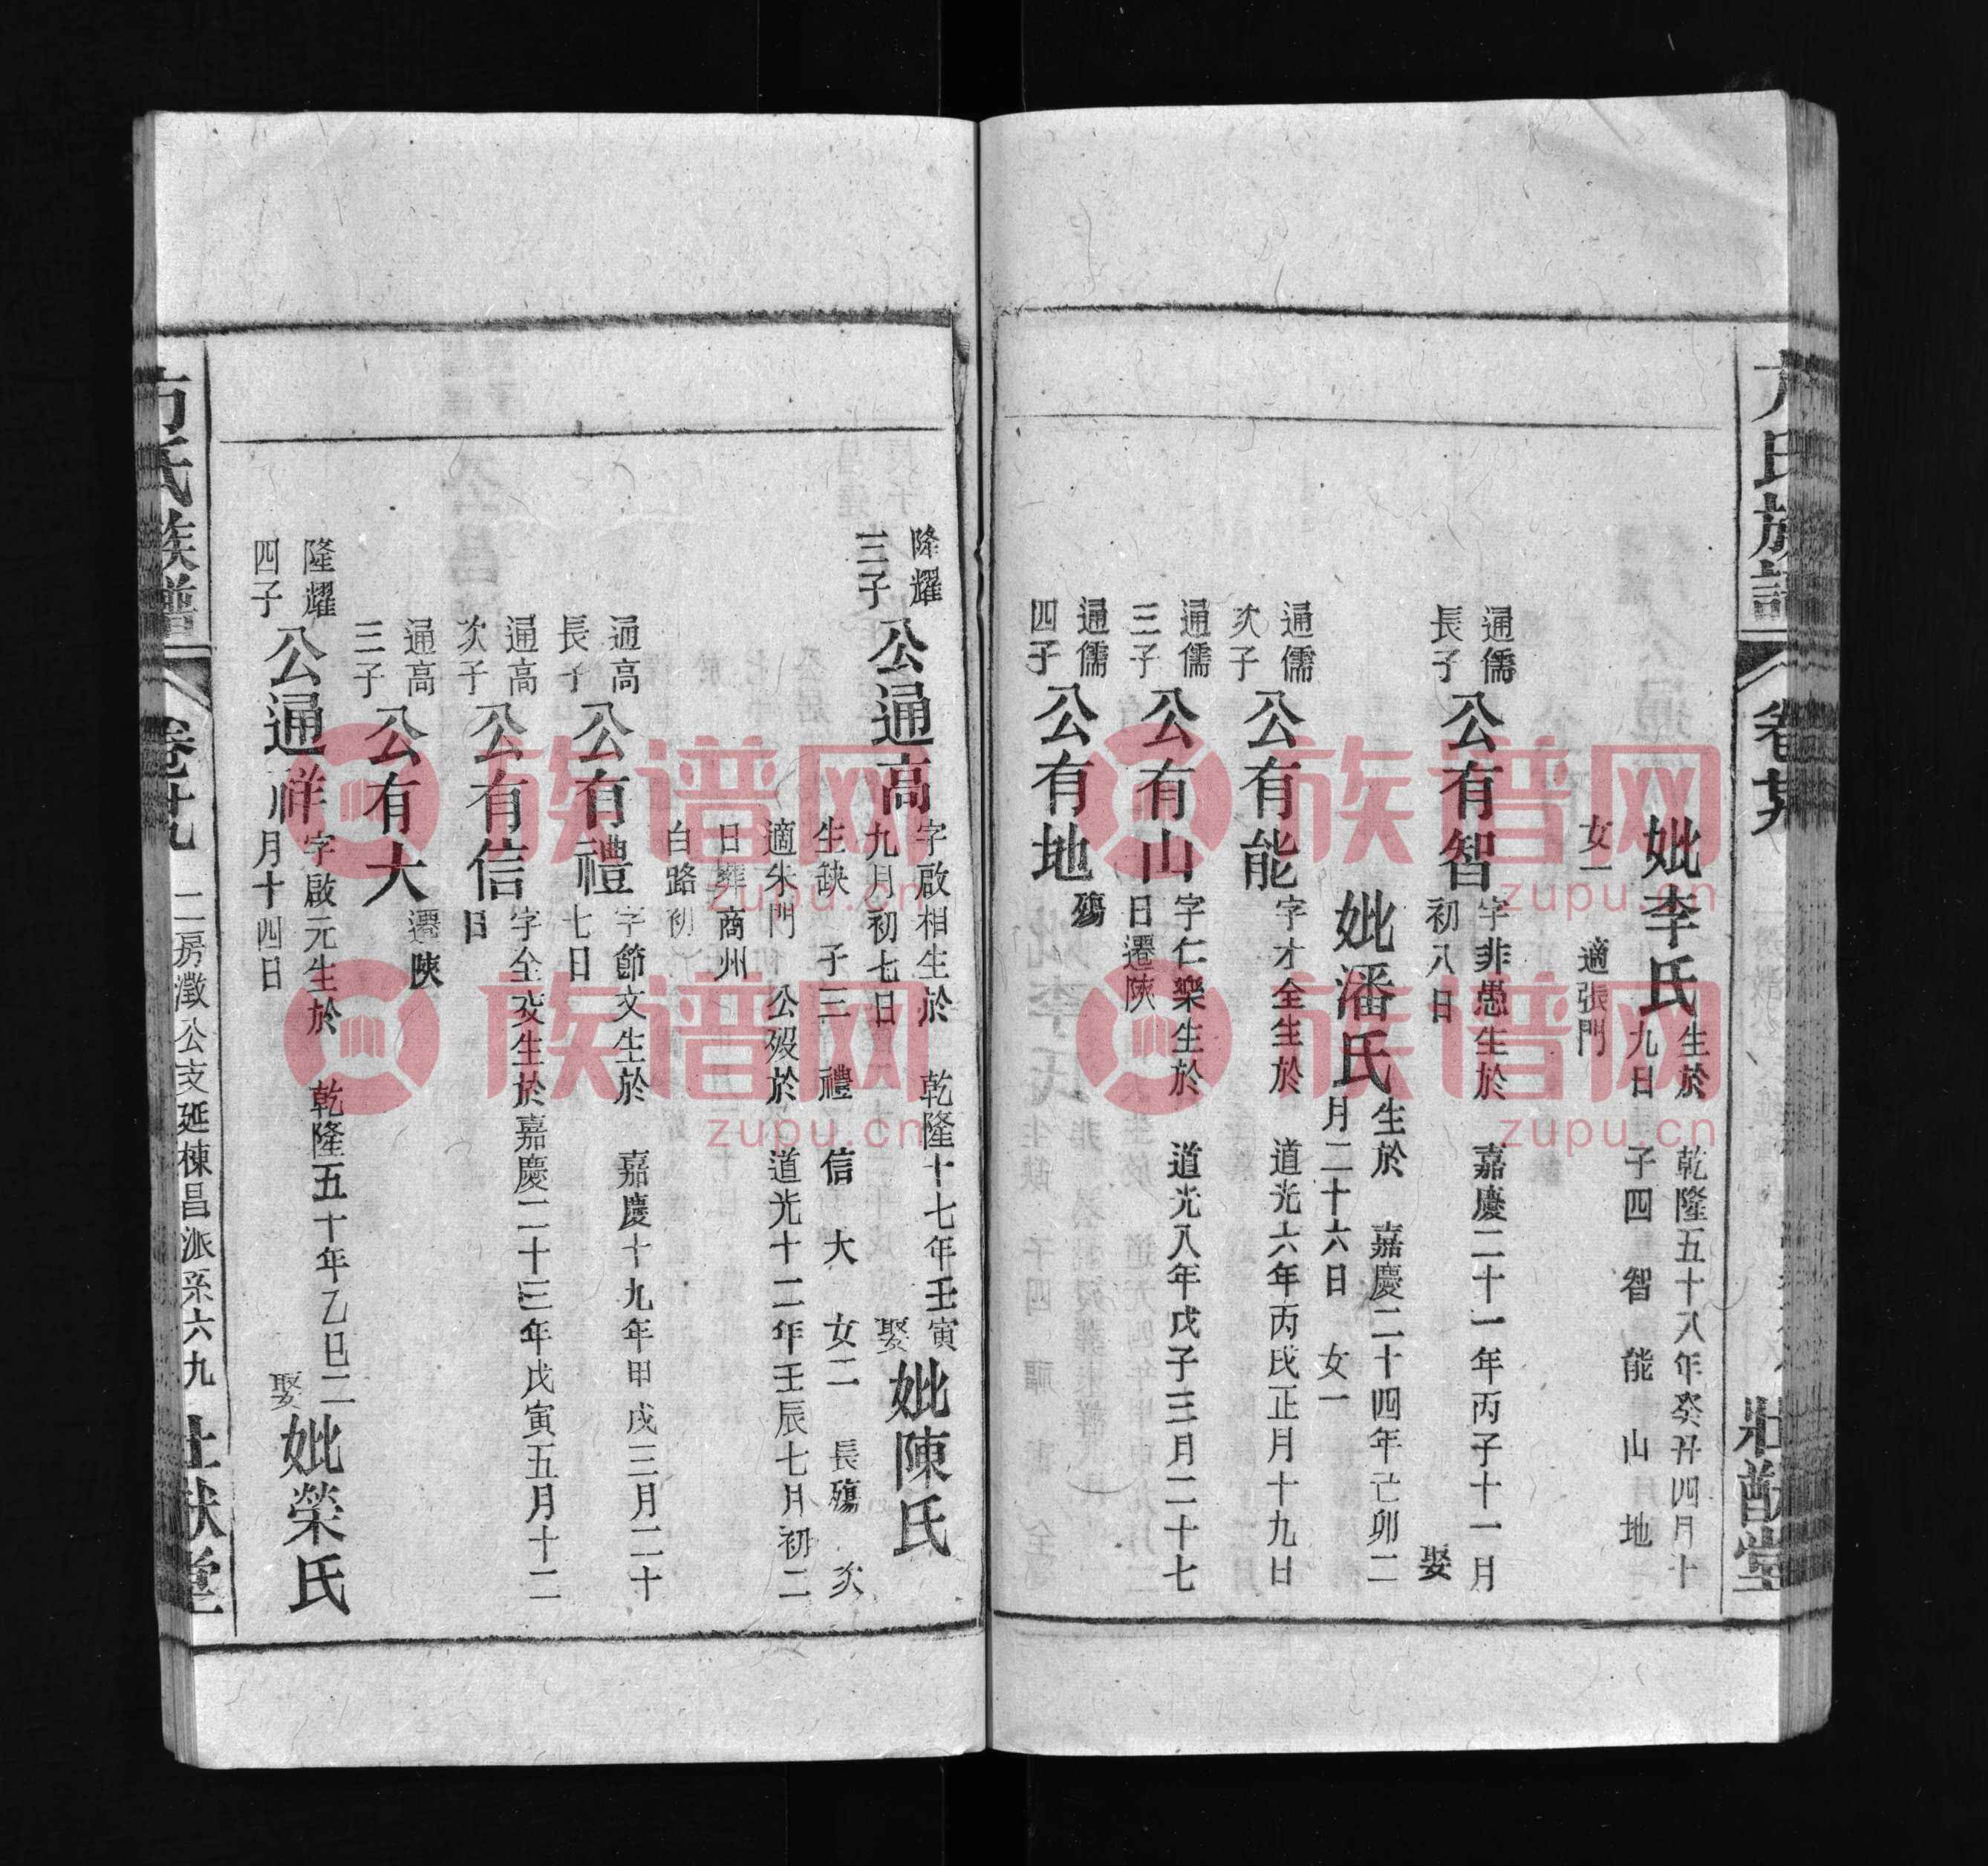 方氏族譜
卷廿九
壯猷堂
妣李氏
生於 乾隆五十八年癸丑四月十
九日 子四 智 能 山 地
女一 適張門
通儒
長子
公有智
字非愚生於 嘉慶二十一年丙子十一月
初八日 娶
妣潘氏
生於 嘉慶二十四年己卯二
月二十六日 女一
通儒
次子
公有能
字才全生於 道光六年丙戌正月十九日
通儒
三子
公有山
字仁樂生於 道光八年戊子三月二十七
日遷陝
通儒
四子
公有地
殤
隆耀
三子
公通高
字啟相生於 乾隆十七年壬寅
九月初七日 娶
妣陳氏
生缺 子三 禮 信 大 女二 長殤 次
適朱門 公歿於 道光十二年壬辰七月初二
日葬商州
白路初
通高
長子
公有禮
字節文生於 嘉慶十九年甲戌三月二十
七日
通高
次子
公有信
字全交生於嘉慶二十三年戊寅五月十二
日
通高
三子
公有大
遷陝
隆耀
四子
公通祥
字啟元生於 乾隆五十年乙巳二
月十四日 娶
妣榮氏
方氏族譜
卷廿九
二房澂公支延棟昌派系六九
壯猷堂
族谱网
zupu.cn
族谱网
zupu.cn
族谱网
zupu.cn
族谱网
zupu.cn